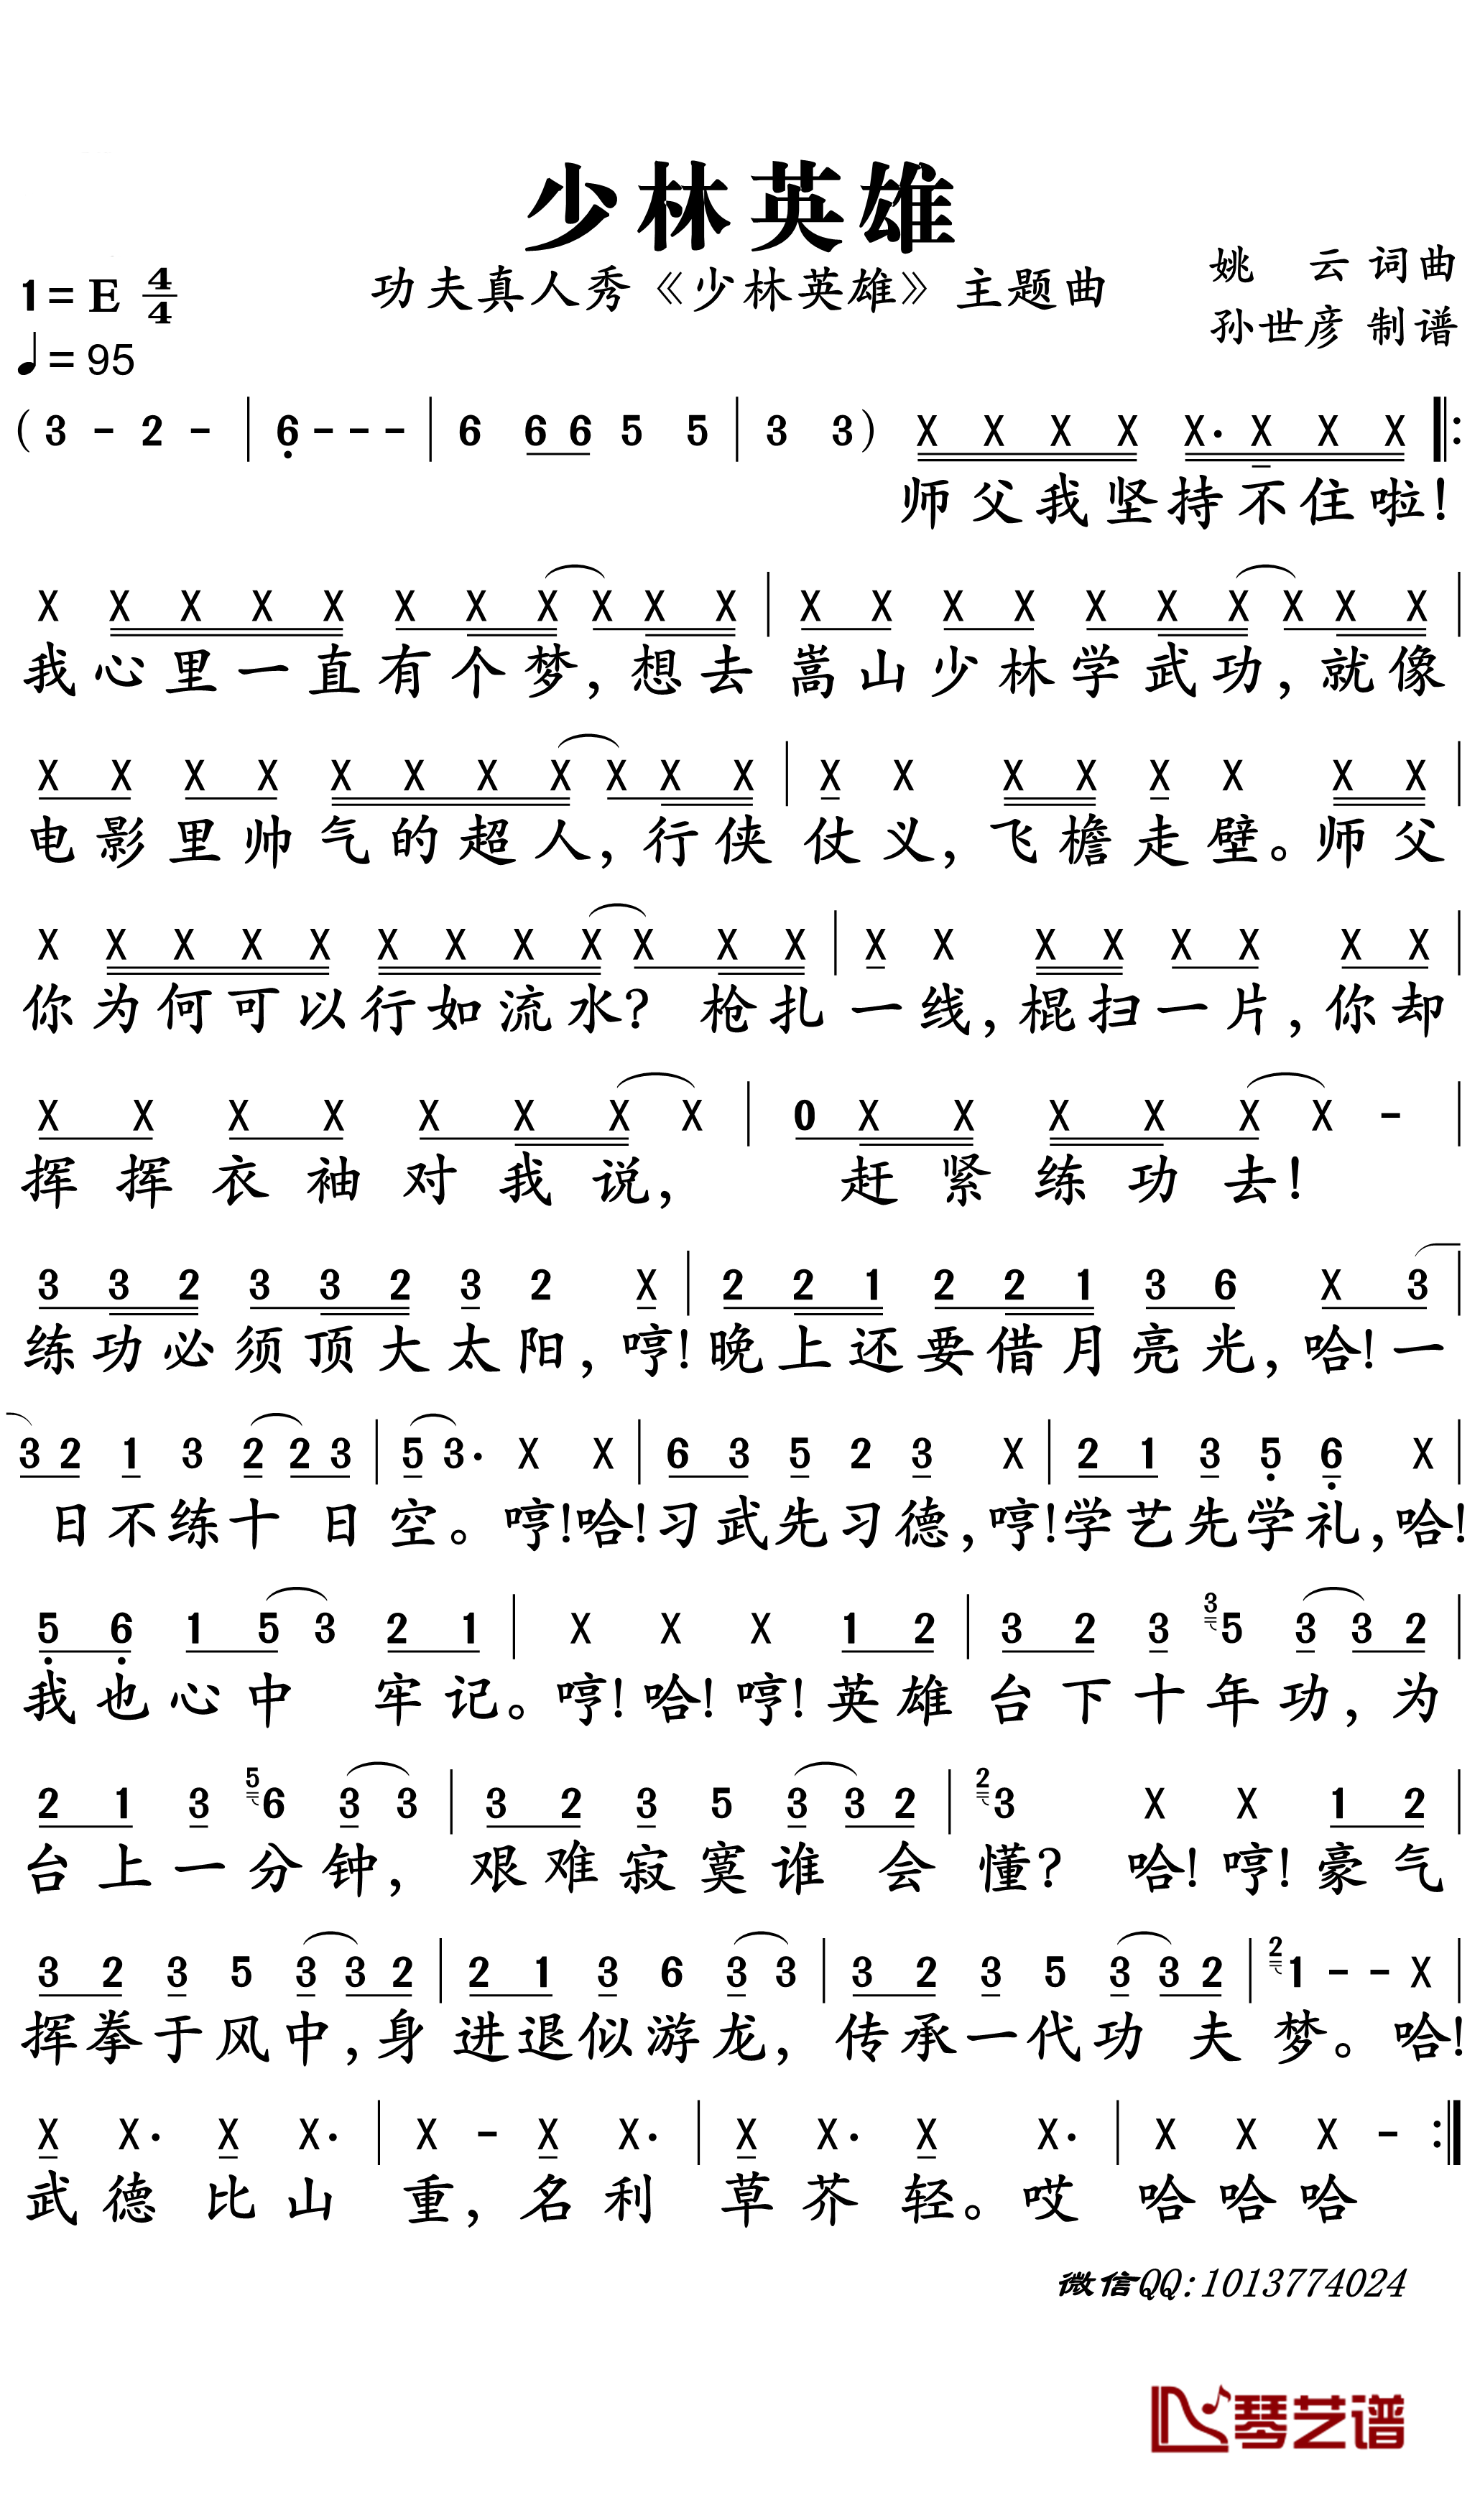 少林英雄
功夫真人秀《少林英雄》主题曲
姚 云 词曲
孙世彦 制谱
1=E 4/4
♩=95
(3 - 2 - | 6̣ - - - | 6 6 6 5 5 | 3 3) X X X X X· X X X ‖:
师父我坚持不住啦!
X X X X X X X X X X X | X X X X X X X X X X |
我心里一直有个梦,想去嵩山少林学武功,就像
X X X X X X X X X X X | X X X X X X X X |
电影里帅气的超人,行侠仗义,飞檐走壁。师父
X X X X X X X X X X X X | X X X X X X X X |
你为何可以行如流水? 枪扎一线,棍扫一片,你却
X X X X X X X X | 0 X X X X X X - |
挥挥衣袖对我说, 赶紧练功去!
3 3 2 3 3 2 3 2 X | 2 2 1 2 2 1 3 6 X 3 |
练功必须顶大太阳,哼!晚上还要借月亮光,哈!一
3 2 1 3 2 2 3 | 5 3· X X | 6 3 5 2 3 X | 2 1 3 5̣ 6̣ X |
日不练十日空。哼!哈!习武先习德,哼!学艺先学礼,哈!
5̣ 6̣ 1 5 3 2 1 | X X X 1 2 | 3 2 3 3 5 3 3 2 |
我也心中 牢记。哼!哈!哼!英雄 台下十年功,为
2 1 3 5 6 3 3 | 3 2 3 5 3 3 2 | 2 3 X X 1 2 |
台上一分钟, 艰难寂寞谁 会 懂? 哈!哼!豪气
3 2 3 5 3 3 2 | 2 1 3 6 3 3 | 3 2 3 5 3 3 2 | 2 1 - - X |
挥拳于风中,身 进退似游龙, 传承一代功 夫 梦。哈!
X X· X X· | X - X X· | X X· X X· | X X X - :‖
武德 比山 重,名利 草芥 轻。哎 哈哈哈
微信QQ:1013774024
琴艺谱